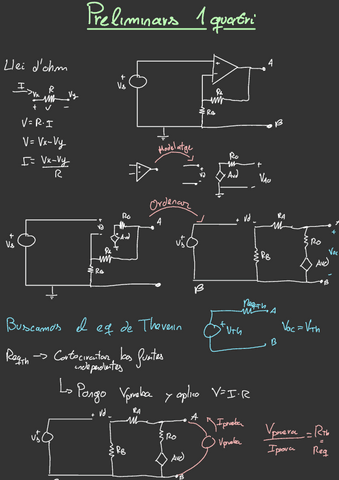 Preliminars 1 quatri
Llei d'ohm
I
Vx R Vy
+ V -
V = R·I
V = Vx-Vy
I = Vx-Vy / R
Vs
RA
RB
A
B
Modelatge
Vd
Ro
Avd
VAO
Ordenar
Vs
Vd
Ro
Avd
RA
RB
A
B
Vs
Vd
RA
RB
Ro
Avd
B
Buscamos el eq de Thevenin
ReqTh
VTh
A
B
Voc = VTh
ReqTh → Cortocircuitar las fuentes
independientes
↳ Pongo Vprueba y aplico V=I·R
Vs
Vd
RA
RB
Ro
Avd
A
B
Iprueba
Vprueba
Vprueba / Iprova = RTh = Req